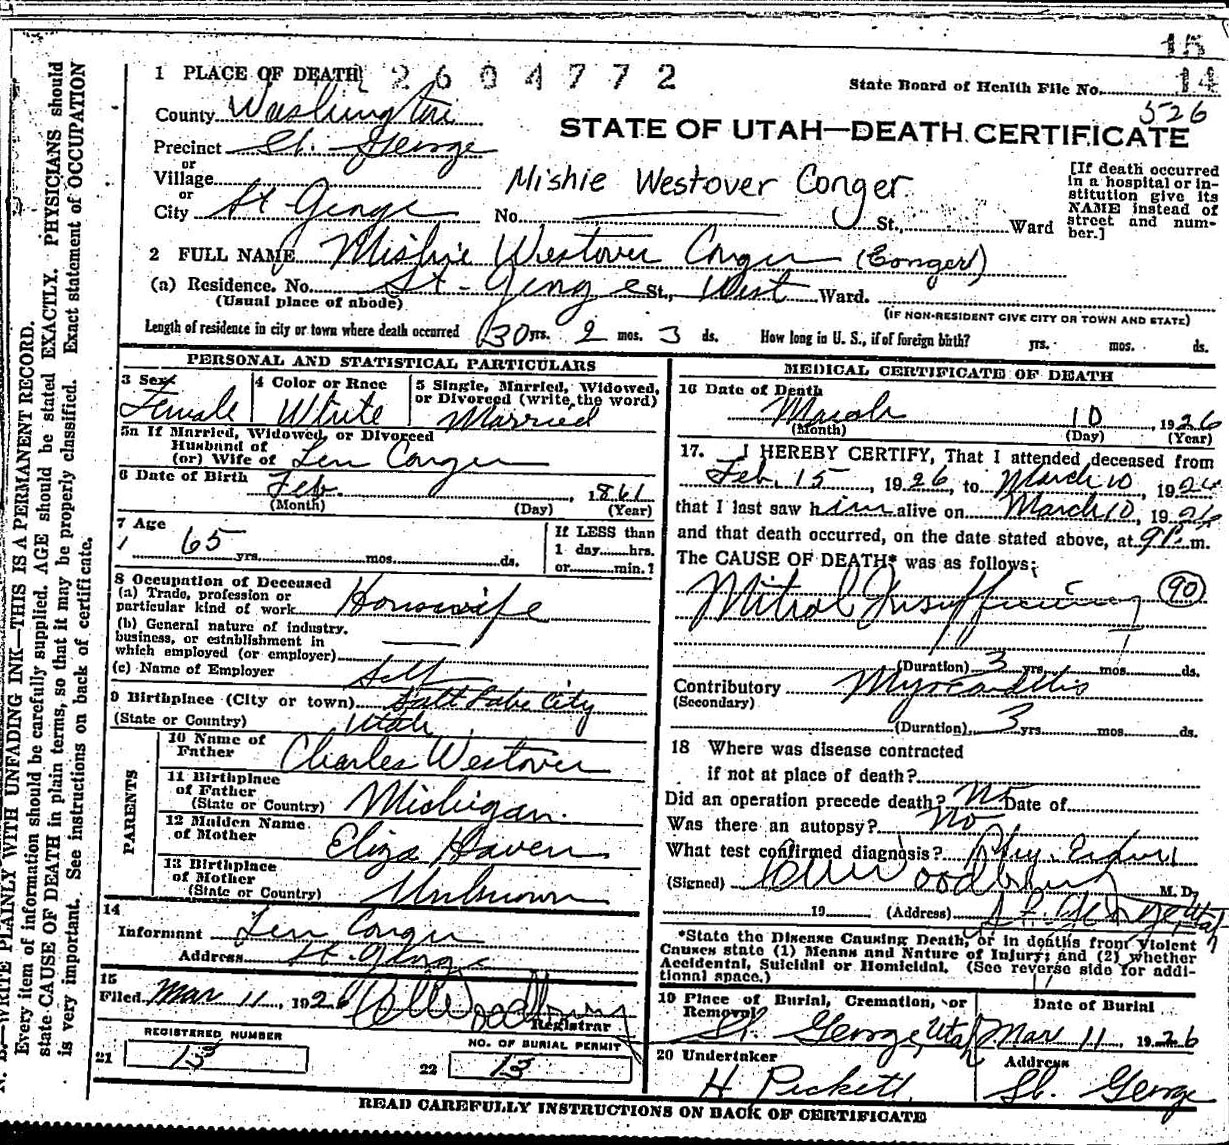 15
14
526
1 PLACE OF DEATH 2604772
State Board of Health File No.
County Washington
STATE OF UTAH—DEATH CERTIFICATE
Precinct St. George
or
Village
Mishie Westover Conger
[If death occurred in a hospital or institution give its NAME instead of street and number.]
or
City St George No. St., Ward
2 FULL NAME Mishie Westover Conger (Conger)
(a) Residence. No. St. George St., West Ward.
(Usual place of abode) (IF NON-RESIDENT GIVE CITY OR TOWN AND STATE)
Length of residence in city or town where death occurred 30 yrs. 2 mos. 3 ds. How long in U. S., if of foreign birth? yrs. mos. ds.
PERSONAL AND STATISTICAL PARTICULARS
3 Sex Female
4 Color or Race White
5 Single, Married, Widowed, or Divorced (write the word) Married
5a If Married, Widowed, or Divorced
Husband of
(or) Wife of Len Conger
6 Date of Birth Feb. , 1861
(Month) (Day) (Year)
7 Age 65 yrs. mos. ds.
If LESS than
1 day hrs.
or min.?
8 Occupation of Deceased
(a) Trade, profession or
particular kind of work Housewife
(b) General nature of industry,
business, or establishment in
which employed (or employer)
(c) Name of Employer Self
9 Birthplace (City or town) Salt Lake City
(State or Country) Utah
PARENTS
10 Name of Father Charles Westover
11 Birthplace of Father (State or Country) Michigan
12 Maiden Name of Mother Eliza Haven
13 Birthplace of Mother (State or Country) Unknown
14
Informant Len Conger
Address St. George
15
Filed Mar 11, 1926 Woodbury
Registrar
REGISTERED NUMBER
21 13
NO. OF BURIAL PERMIT
22 13
MEDICAL CERTIFICATE OF DEATH
16 Date of Death
March 10 1926
(Month) (Day) (Year)
17. I HEREBY CERTIFY, That I attended deceased from
Feb. 15, 1926, to March 10, 1926
that I last saw him alive on March 10, 1926
and that death occurred, on the date stated above, at 9 P. m.
The CAUSE OF DEATH* was as follows:
Mitral Insufficiency 90
(Duration) 3 yrs. mos. ds.
Contributory Myocarditis
(Secondary)
(Duration) 3 yrs. mos. ds.
18 Where was disease contracted
if not at place of death?
Did an operation precede death? No Date of
Was there an autopsy? No
What test confirmed diagnosis?
(Signed) Woodbury M. D.
19 (Address) St. George, Utah
*State the Disease Causing Death, or in deaths from Violent
Causes state (1) Means and Nature of Injury; and (2) whether
Accidental, Suicidal or Homicidal. (See reverse side for addi-
tional space.)
19 Place of Burial, Cremation, or Removal St. George, Utah
Date of Burial Mar 11, 1926
20 Undertaker H Pickett
Address St. George
READ CAREFULLY INSTRUCTIONS ON BACK OF CERTIFICATE
N. B.—WRITE PLAINLY WITH UNFADING INK—THIS IS A PERMANENT RECORD.
Every item of information should be carefully supplied. AGE should be stated EXACTLY. PHYSICIANS should
state CAUSE OF DEATH in plain terms, so that it may be properly classified. Exact statement of OCCUPATION
is very important. See instructions on back of certificate.